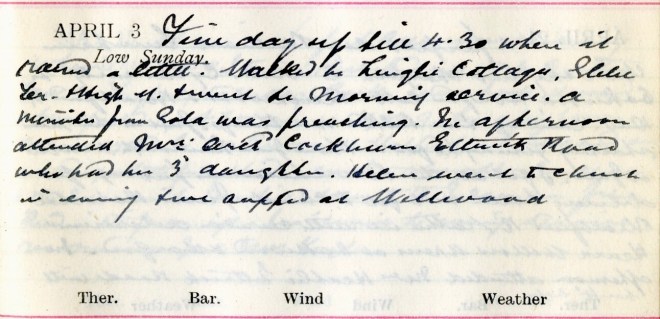 APRIL 3 Fine day up till 4.30 when it
Low Sunday.
rained a little. Walked to Linglie Cottage, Glebe
Ter. High St. & went to morning service. A
minister from was preaching. In afternoon
attended Mrs Cockburn Ettrick Road
who had her 3rd daughter. Helen went to church
in evening & we supped at Wellwood
Ther. Bar. Wind Weather